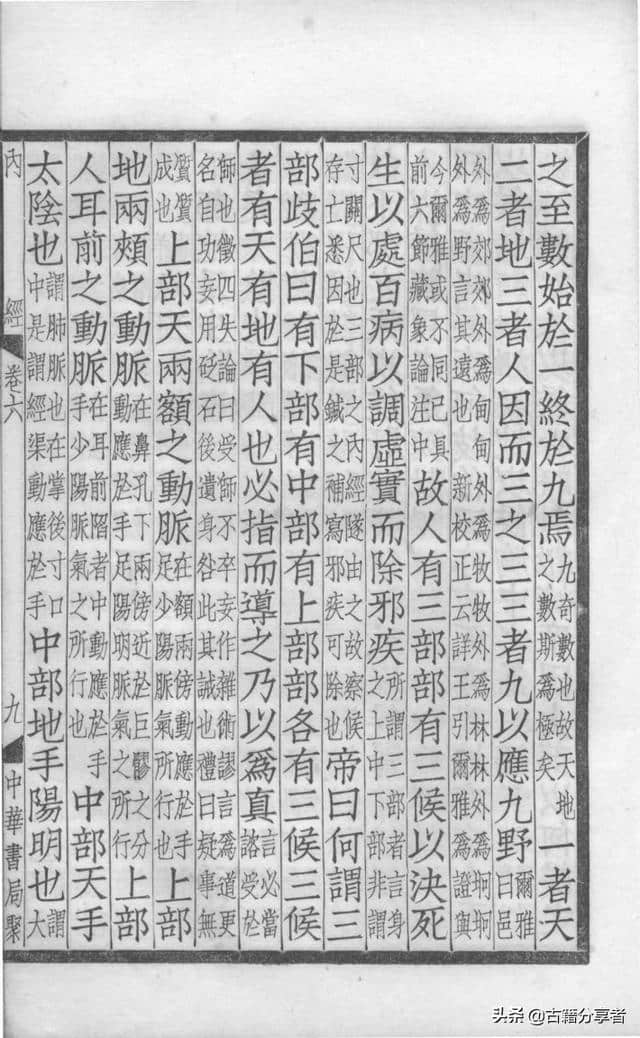 之至數始於一終於九焉九奇數也故天地之數斯爲極矣一者天
二者地三者人因而三之三三者九以應九野爾雅曰邑
外爲郊郊外爲甸甸外爲牧牧外爲林林外爲坰坰外爲野言其遠也 新校正云詳王引爾雅爲證與
今爾雅或不同已具前六節藏象論注中故人有三部部有三候以決死
生以處百病以調虛實而除邪疾所謂三部者言身之上中下部非謂
寸關尺也三部之內經隧由之故察候存亡悉因於是鍼之補寫邪疾可除也帝曰何謂三
部歧伯曰有下部有中部有上部部各有三候三候
者有天有地有人也必指而導之乃以爲真言必當諮受於
師也徵四失論曰受師不卒妄作雜術謬言爲道更名自功妄用砭石後遺身咎此其誡也禮曰疑事無
質質成也上部天兩額之動脈在額兩傍動應於手足少陽脈氣所行也上部
地兩頰之動脈在鼻孔下兩傍近於巨髎之分動應於手足陽明脈氣之所行上部
人耳前之動脈在耳前陷者中動應於手手少陽脈氣之所行也中部天手
太陰也謂肺脈也在掌後寸口中是謂經渠動應於手中部地手陽明也謂大
內經 卷六 九 中華書局聚
头条 @古籍分享者